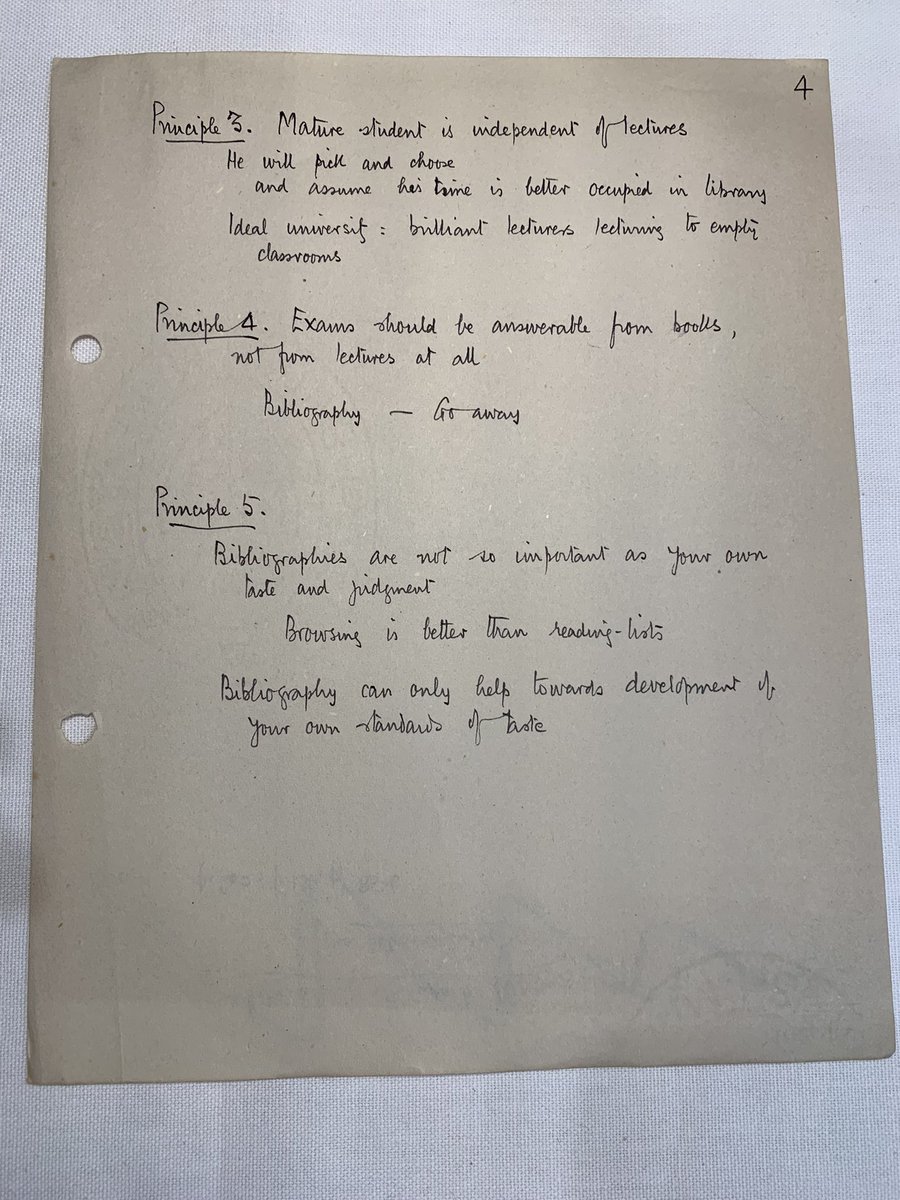 4
Principle 3. Mature student is independent of lectures
He will pick and choose
and assume his time is better occupied in library
Ideal university : brilliant lecturers lecturing to empty
classrooms
Principle 4. Exams should be answerable from books,
not from lectures at all
Bibliography — Go away
Principle 5.
Bibliographies are not so important as your own
taste and judgment
Browsing is better than reading-lists
Bibliography can only help towards development of
your own standards of taste